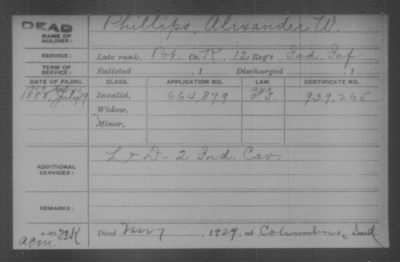 DEAD Phillips, Alexander W.
NAME OF SOLDIER:
SERVICE: Late rank, Pvt. Co. K, 12 Reg't Ind. Inf.
TERM OF SERVICE: Enlisted , 1 Discharged , 1
DATE OF FILING. CLASS. APPLICATION NO. LAW. CERTIFICATE NO.
1888, July 9 Invalid, 664,879 939,265
Widow,
Minor,
ADDITIONAL SERVICES: L & D - 2 Ind. Cav.
REMARKS:
Died Nov 7, 1929, at Columbus, Ind